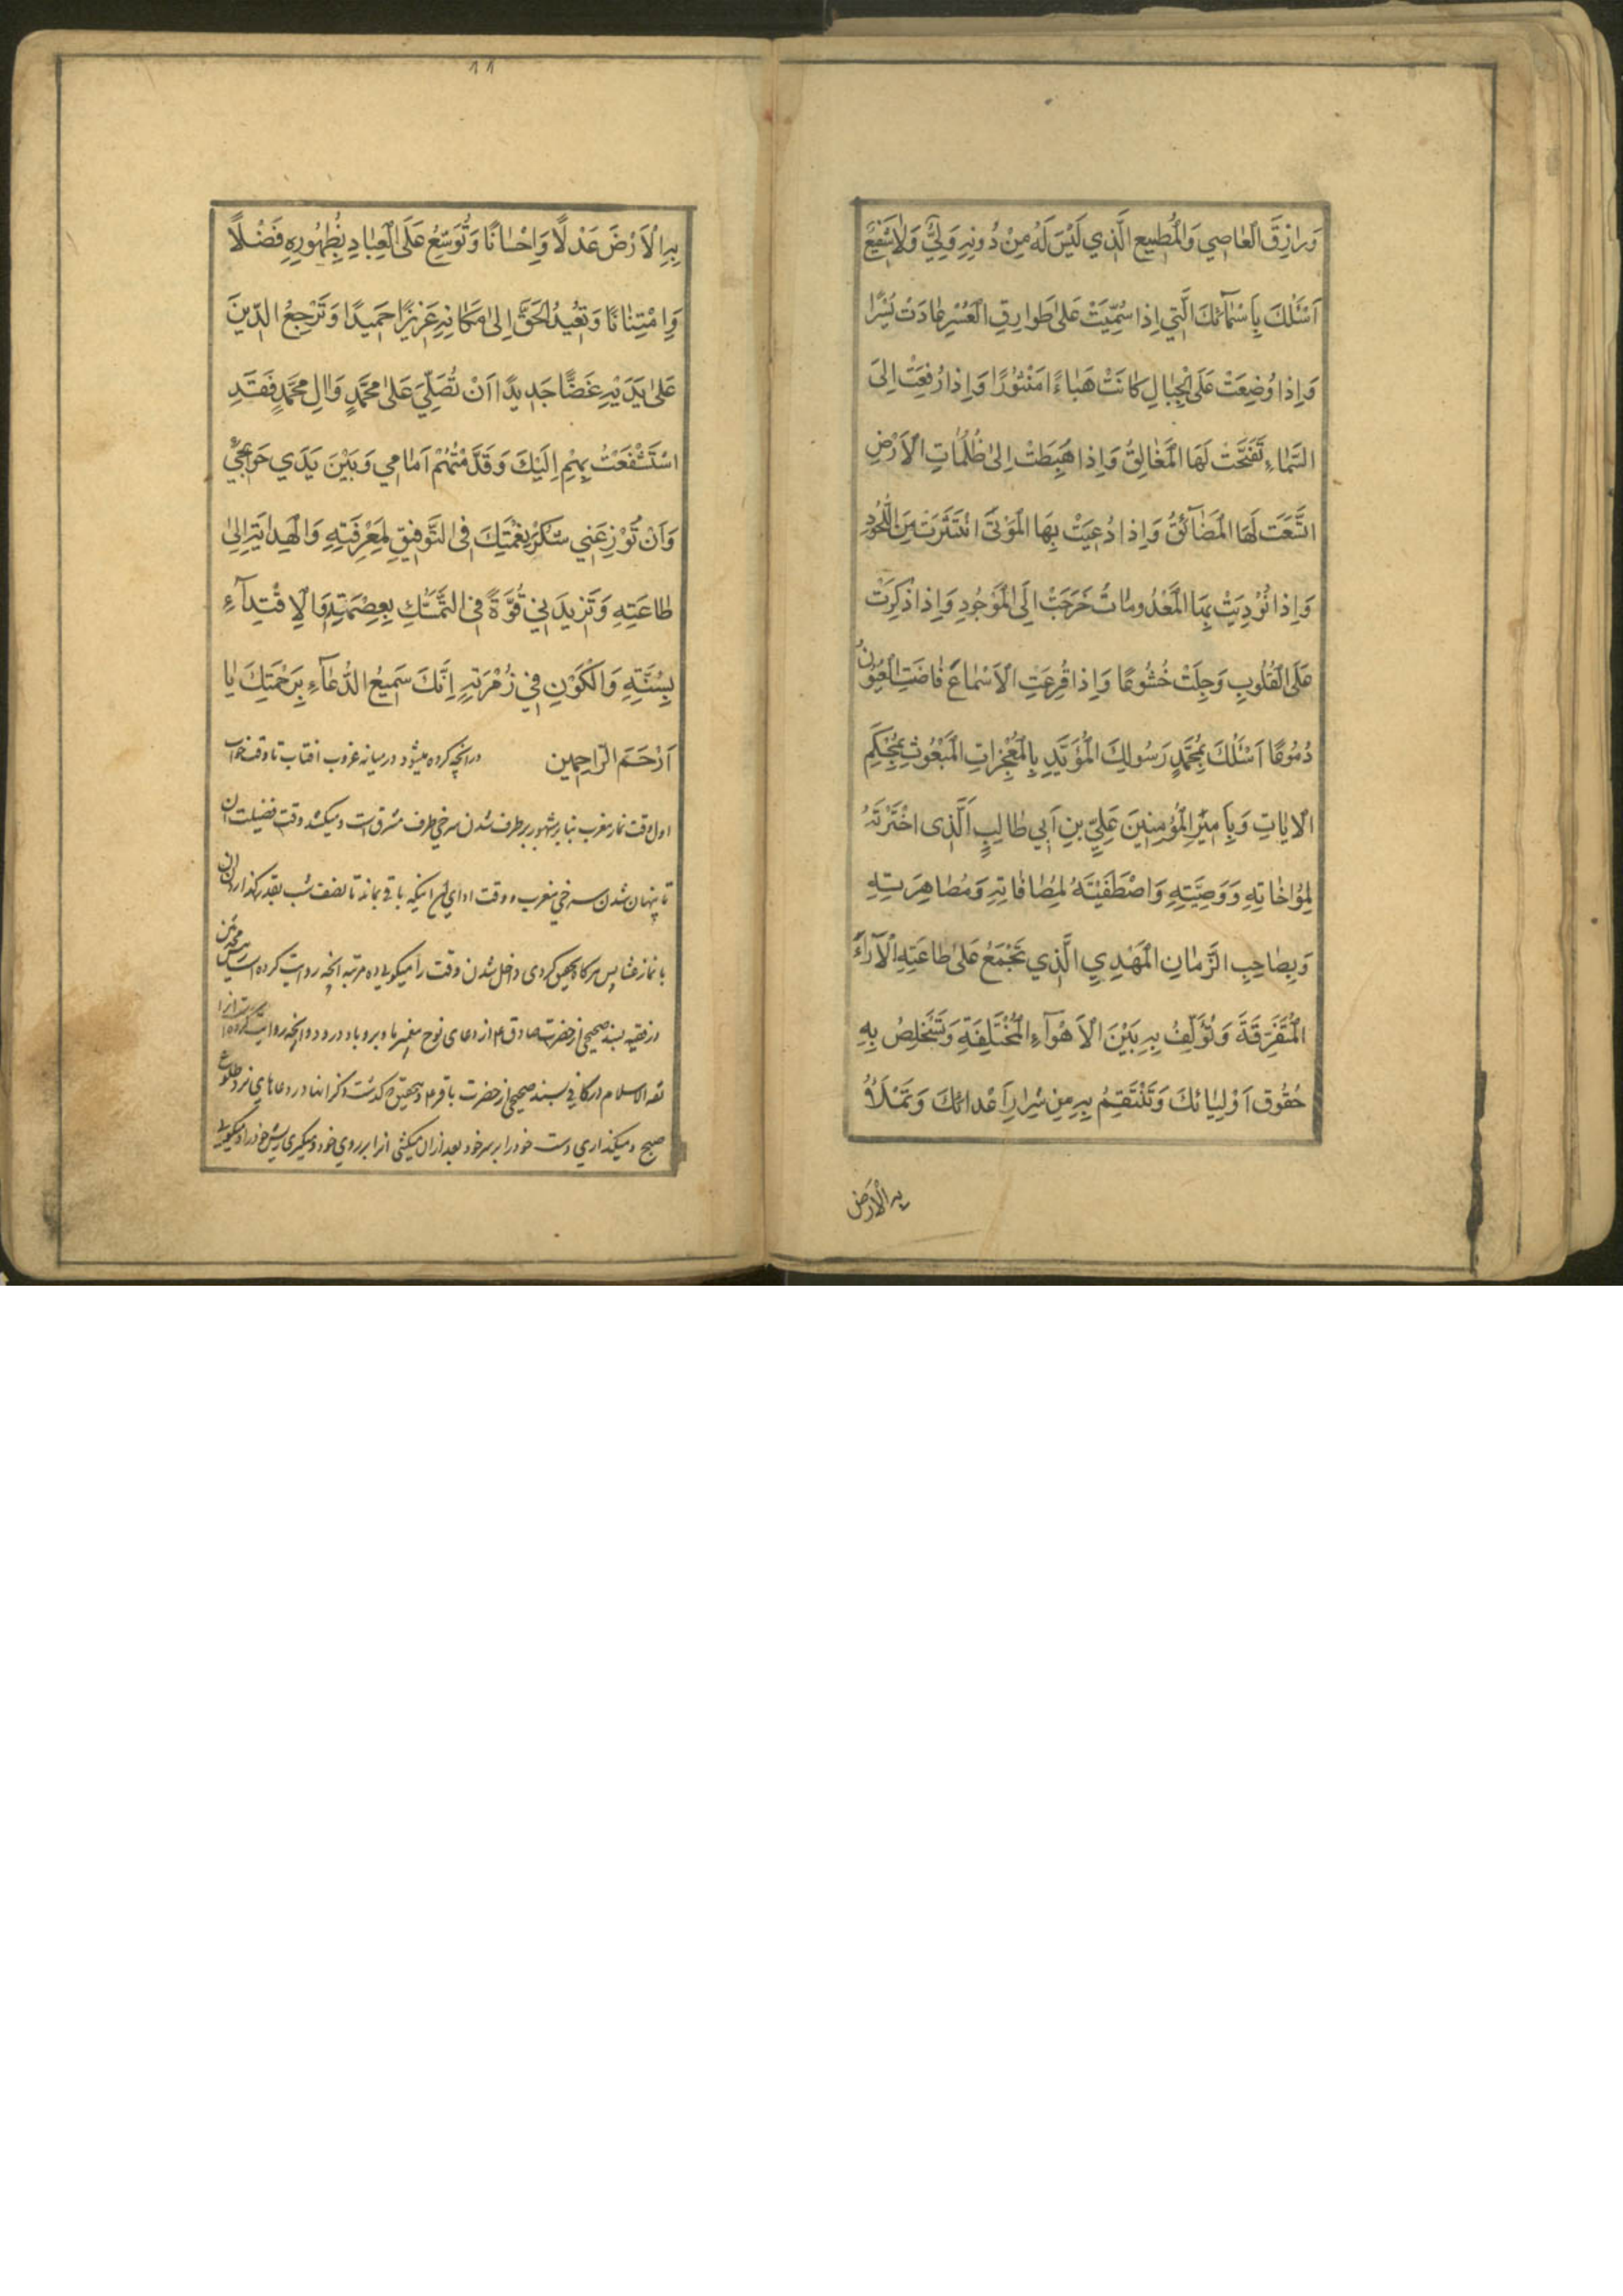 وَرازِقَ الْعاصِي وَالْمُطيعِ الَّذي لَيْسَ لَهُ مِنْ دُونِهِ وَلِيٌّ وَلا شَفيعٌ
اَسْئَلُكَ بِاَسْمآئِكَ الَّتي اِذا سُمِّيَتْ عَلىٰ طَوارِقِ الْعُسْرِ عادَتْ يُسْرًا
وَاِذا وُضِعَتْ عَلَى الْجِبالِ كانَتْ هَباءً مَنْثُورًا وَاِذا رُفِعَتْ اِلَى
السَّماءِ تَفَتَّحَتْ لَهَا الْمَغالِقُ وَاِذا هَبَطَتْ اِلىٰ ظُلُماتِ الْاَرْضِ
اتَّسَعَتْ لَهَا الْمَضآئِقُ وَاِذا دُعِيَتْ بِهَا الْمَوْتىٰ انْتَشَرَتْ مِنَ اللُّحُودِ
وَاِذا نُودِيَتْ بِهَا الْمَعْدُوماتُ خَرَجَتْ اِلَى الْمَوْجُودِ وَاِذا ذُكِرَتْ
عَلَى الْقُلُوبِ وَجِلَتْ خُشُوعًا وَاِذا قُرِعَتِ الْاَسْماعَ فاضَتِ الْعُيُونُ
دُمُوعًا اَسْئَلُكَ بِمُحَمَّدٍ رَسُولِكَ الْمُؤَيَّدِ بِالْمُعْجِزاتِ الْمَبْعُوثِ بِمُحْكَمِ
الْاياتِ وَبِاَميرِ الْمُؤْمِنينَ عَلِيِّ بْنِ اَبي طالِبٍ اَلَّذى اخْتَرْتَهُ
لِمُؤاخاتِهِ وَوَصِيَّتِهِ وَاصْطَفَيْتَهُ لِمُصافاتِهِ وَمُصاهِرَتِهِ
وَبِصاحِبِ الزَّمانِ الْمَهْدِيِ الَّذي تَجْمَعُ عَلىٰ طاعَتِهِ الْآراءَ
الْمُتَفَرِّقَةَ وَتُؤَلِّفُ بِهِ بَيْنَ الْاَهْوآءِ الْمُخْتَلِفَةِ وَتَسْتَخْلِصُ بِهِ
حُقُوقَ اَوْلِيائِكَ وَتَنْتَقِمُ بِهِ مِنْ شِرارِ اَعْدائِكَ وَتَمْلَأُ
به الْاَرَض
١١
بِهِ الْاَرْضَ عَدْلًا وَاِحْسانًا وَتُوَسِّعُ عَلَى الْعِبادِ بِظُهُورِهِ فَضْلًا
وَامْتِنانًا وَتُعيدُ الْحَقَّ اِلىٰ مَكانِهِ عَزيزًا حَميدًا وَتَرْجِعُ الدّينَ
عَلىٰ يَدَيْهِ غَضًّا جَديدًا اَنْ تُصَلِّيَ عَلىٰ مُحَمَّدٍ وَالِ مُحَمَّدٍ فَقَدِ
اسْتَشْفَعْتُ بِهِمْ اِلَيْكَ وَقَدَّمْتُهُمْ اَمامي وَبَيْنَ يَدَي حَوآئِجي
وَاَنْ تُوْزِعَني شُكْرَ نِعْمَتِكَ فِى التَّوفيقِ لِمَعْرِفَتِهِ وَالْهِدايَةِ اِلىٰ
طاعَتِهِ وَتَزيدَني قُوَّةً فِى التَّمَسُّكِ بِعِصْمَتِهِ وَالْاِقْتِدآءِ
بِسُنَّتِهِ وَالْكَوْنِ في زُمْرَتِهِ اِنَّكَ سَميعُ الدُّعآءِ بِرَحْمَتِكَ يا
اَرْحَمَ الرّاحِمين در انچه كرده ميشود در ميانه غروب افتاب تا وقت خواب
اول وقت نماز مغرب بنابر مشهور برطرف شدن سرخى طرف مشرق است و ميكشد وقت فضيلت ان
تا پنهان شدن سرخى مغرب و وقت اداى ان اينكه باقى بماند تا نصف شب بقدر گذاردن ان
با نماز عشا پس هر گاه يقين كردى داخل شدن وقت را ميگوئى ده مرتبه انچه روايت كرده است
در فقيه بسند صحيح از حضرت صادق ع از دعاى نوح پيغمبر ما و برو باد درود و انچه روايت كرده
ثقه الاسلام در كافى بسند صحيح از حضرت باقر ع و بتحقيق كه گذشت ذكر انها در دعاهاي نزد طلوع
صبح و ميگذاري دست خود را بر سر خود بعد از ان ميكشى انرا بر روي خود و ميگيرى ريش خود را و ميگوئى